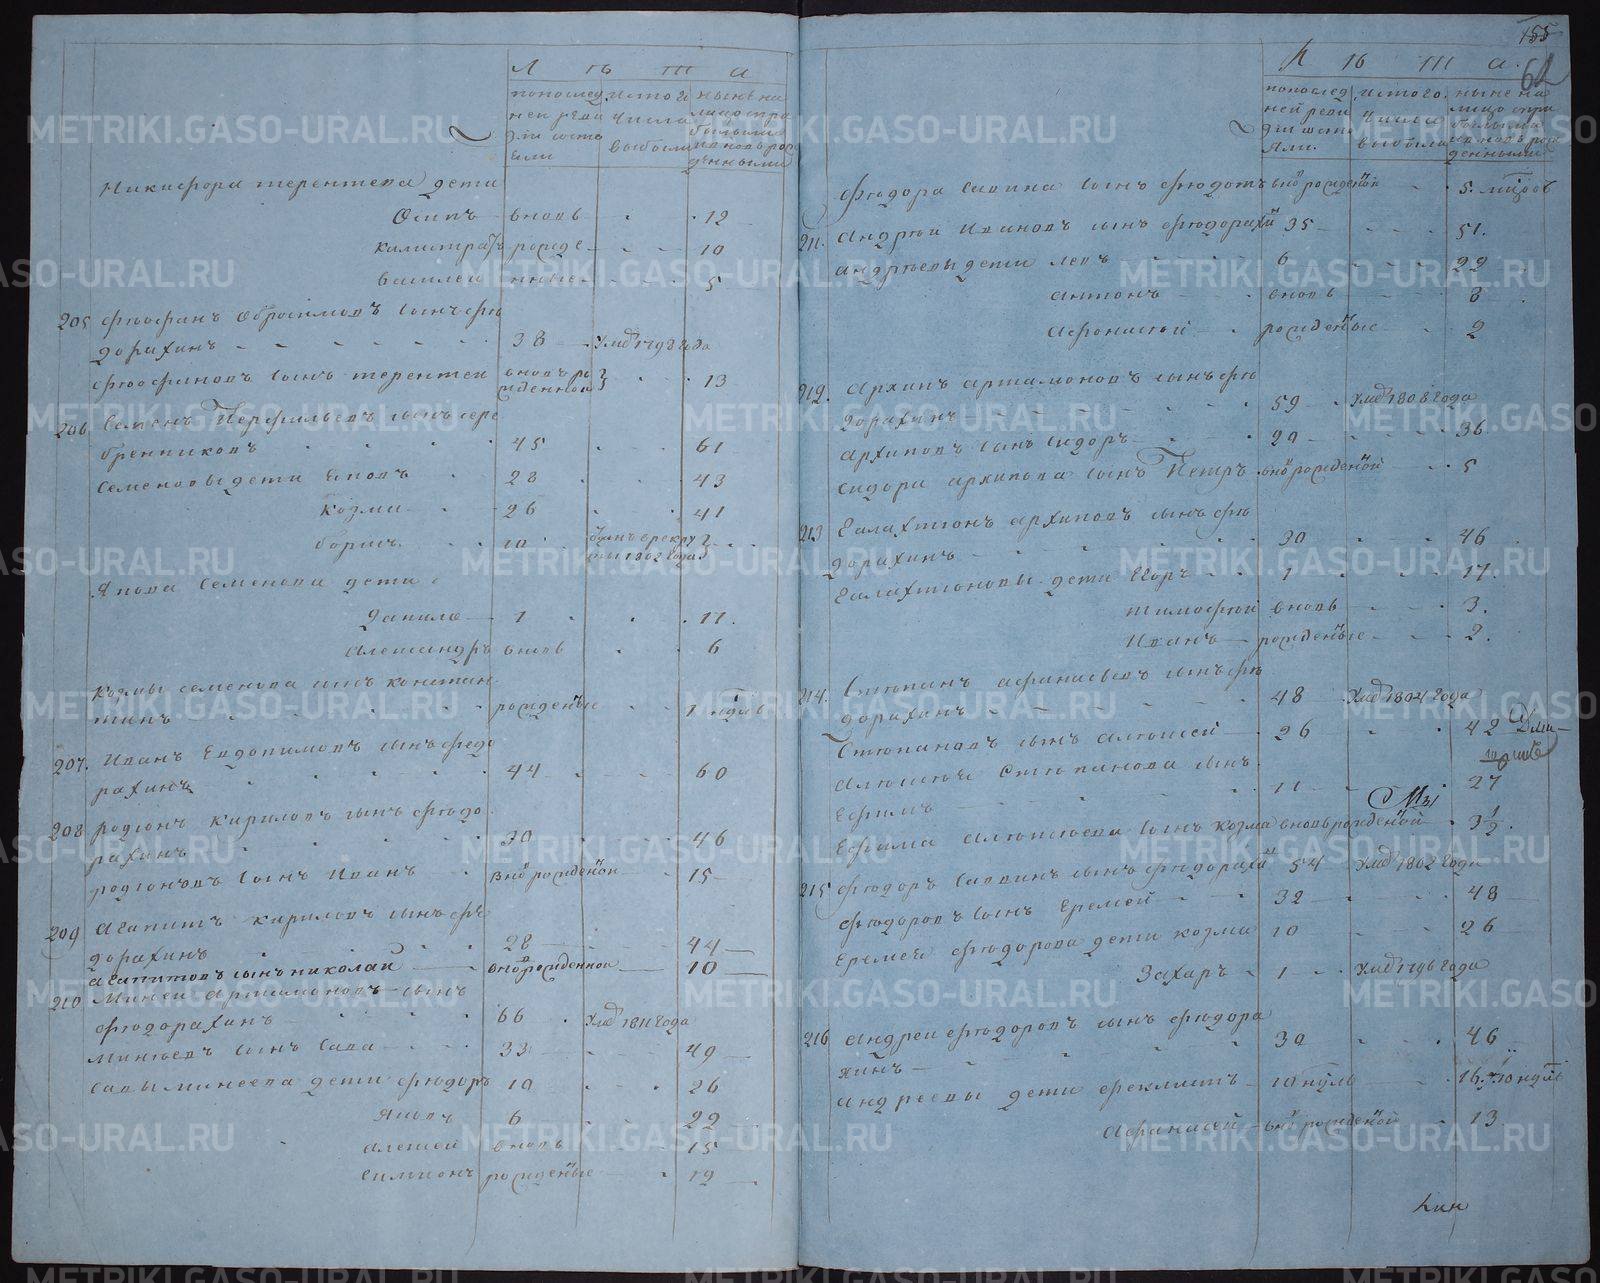 Л ѣ т а
попослед
ней реви
зии состо
яли
исто го
числа
выбыли
ныне на
лицо спри
былыми
и вновь рож
денными
Никифора терентева дети
Осипъ вновь 12
Калистратъ рожде 10
Василей нные 5
205 Фѣофанъ Обросимовъ сынъ фѣ
дорахинъ 38 Умро 1798 года
Фѣофановъ сынъ терентей вновь ро
жденной 13
206 Семенъ Перфильевъ сынъ сере
бренниковъ 45 61
Семеновы дети Яковъ 28 43
Козма 26 41
Борисъ 10 рекру
ты 1802 года
Якова Семенова дети
Данило 1 17.
Александръ вновь 6
Козмы семенова сынъ констан
тинъ рожденые 1 нѣдель
207. Иванъ Евдокимовъ сынъ федо
рахинъ 44 60
208 Родіонъ Кириловъ сынъ фѣдо
рахинъ 30 46
родіоновъ сынъ Иванъ внѡ рожденой 15
209 Агапитъ Кириловъ сынъ фѣ
дорахинъ 28 44
агапитовъ сынъ николай вновь рожденной 10
210 Миней Артамоновъ сынъ
фѣдорахинъ 66 Умро 1811 года
Минѣевъ сынъ Сава 33 49
Савы минеева дети фѣдоръ 10 26
Яковъ 6 22
Алексей вновь 15
Симионъ рожденые 12
155
62
Л ѣ т а.
попослед
ней реви
зии состо
яли.
исто го
числа
выбыли
ныне на
лицо при
былыми
и вновь рож
денными
Фѣдора Савина сынъ фѣдотъ внѡ рожденой 5. мцовъ
211. Андрѣй Ивановъ сынъ фѣдорахин 35 51.
Андрѣевы дети левъ 6 22
Антонъ вновь 8
Афонасей рожденые 2
212. Архипъ артамоновъ сынъ фѣ
дорахинъ 59 Умро 1808 года
Архиповъ сынъ Сидоръ 20 36
Сидора архипова сынъ Петръ внѡ рожденой 5
213 Галахтіонъ архиповъ сынъ фѣ
дорахинъ 30 46
Галахтіоновы дети Егоръ 1 17.
тимофей вновь 3.
Иванъ рожденые 2.
214. Стѣпанъ афанасьевъ сынъ фѣ
дорахинъ 48 Умро 1804 года
Стѣпановъ сынъ алексей 26 42
Алексея Стѣпанова сынъ
Ефимъ 11 27
Ефима Алексѣева сынъ Козма вновь рожденой 3 1/2.
215 Фѣдоръ Саввинъ сынъ фѣдорахин 54 Умро 1802 года
Фѣдоровъ сынъ Еремей 32 48
Еремея фѣдорова дети козма 10 26
Захаръ 1 Умро 1796 года
216 Андрей фѣдоровъ сынъ фѣдора
хинъ 30 46
Андреевы дети фреклистъ 10 нуль 16
Афанасей внѡ рожденой 13